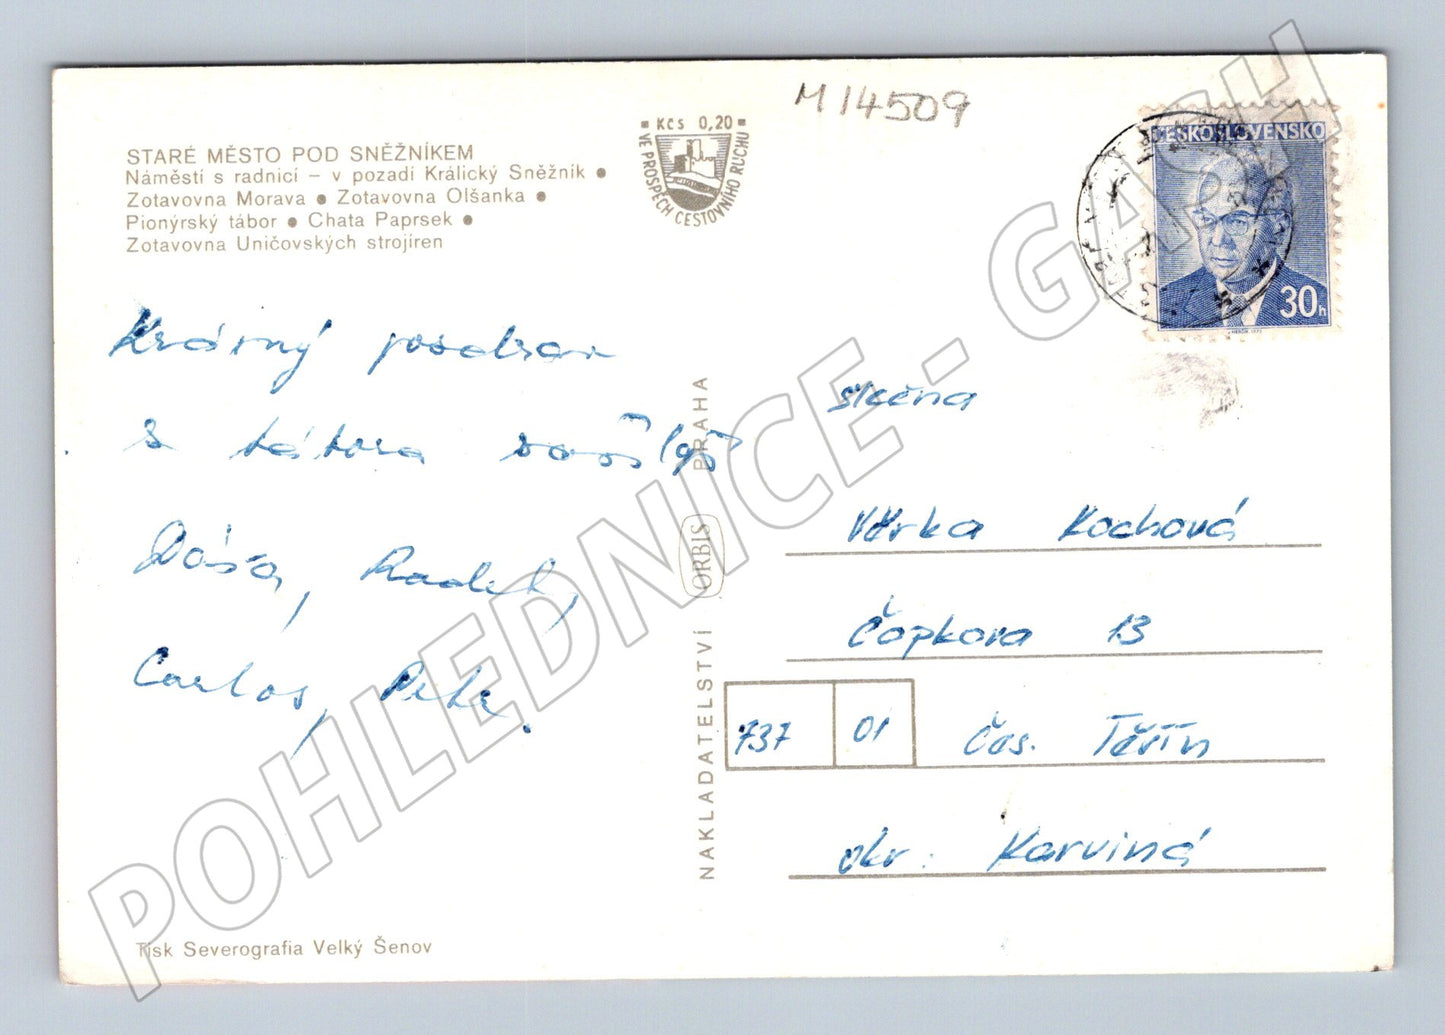 M14509
STARÉ MĚSTO POD SNĚŽNÍKEM
Náměstí s radnicí – v pozadí Králický Sněžník ●
Zotavovna Morava ● Zotavovna Olšanka ●
Pionýrský tábor ● Chata Paprsek ●
Zotavovna Uničovských strojíren
Kčs 0,20
VE PROSPĚCH CESTOVNÍHO RUCHU
ČESKOSLOVENSKO
30h
Krásný pozdrav
z tábora
Dáša, Radek,
Carlos,
NAKLADATELSTVÍ ORBIS PRAHA
slečna
Věrka Kochová
Čapkova 13
737 01 Čes. Těšín
okr. Karviná
Tisk Severografia Velký Šenov
POHLEDNICE - GACH